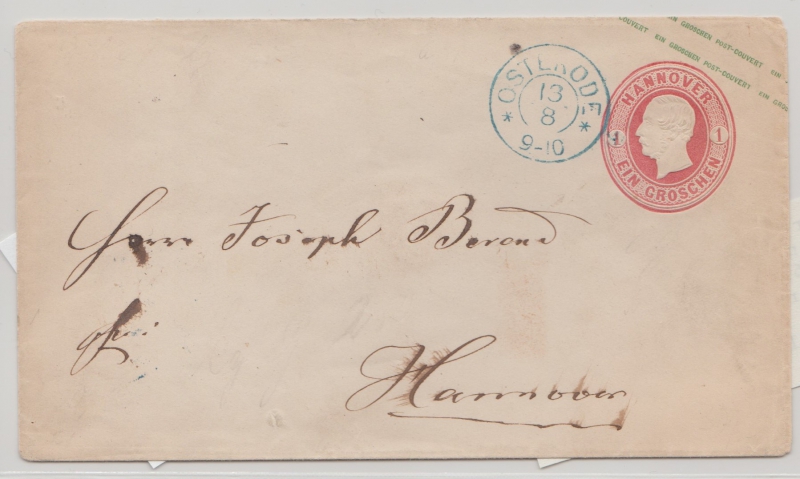 COUVERT EIN GROSCHEN POST-COUVERT EIN
EIN GROSCHEN POST-COUVERT EIN GROS
OSTERODE
13
8
9-10
HANNOVER
1 1
EIN GROSCHEN
Herrn Joseph Berend
Hannover